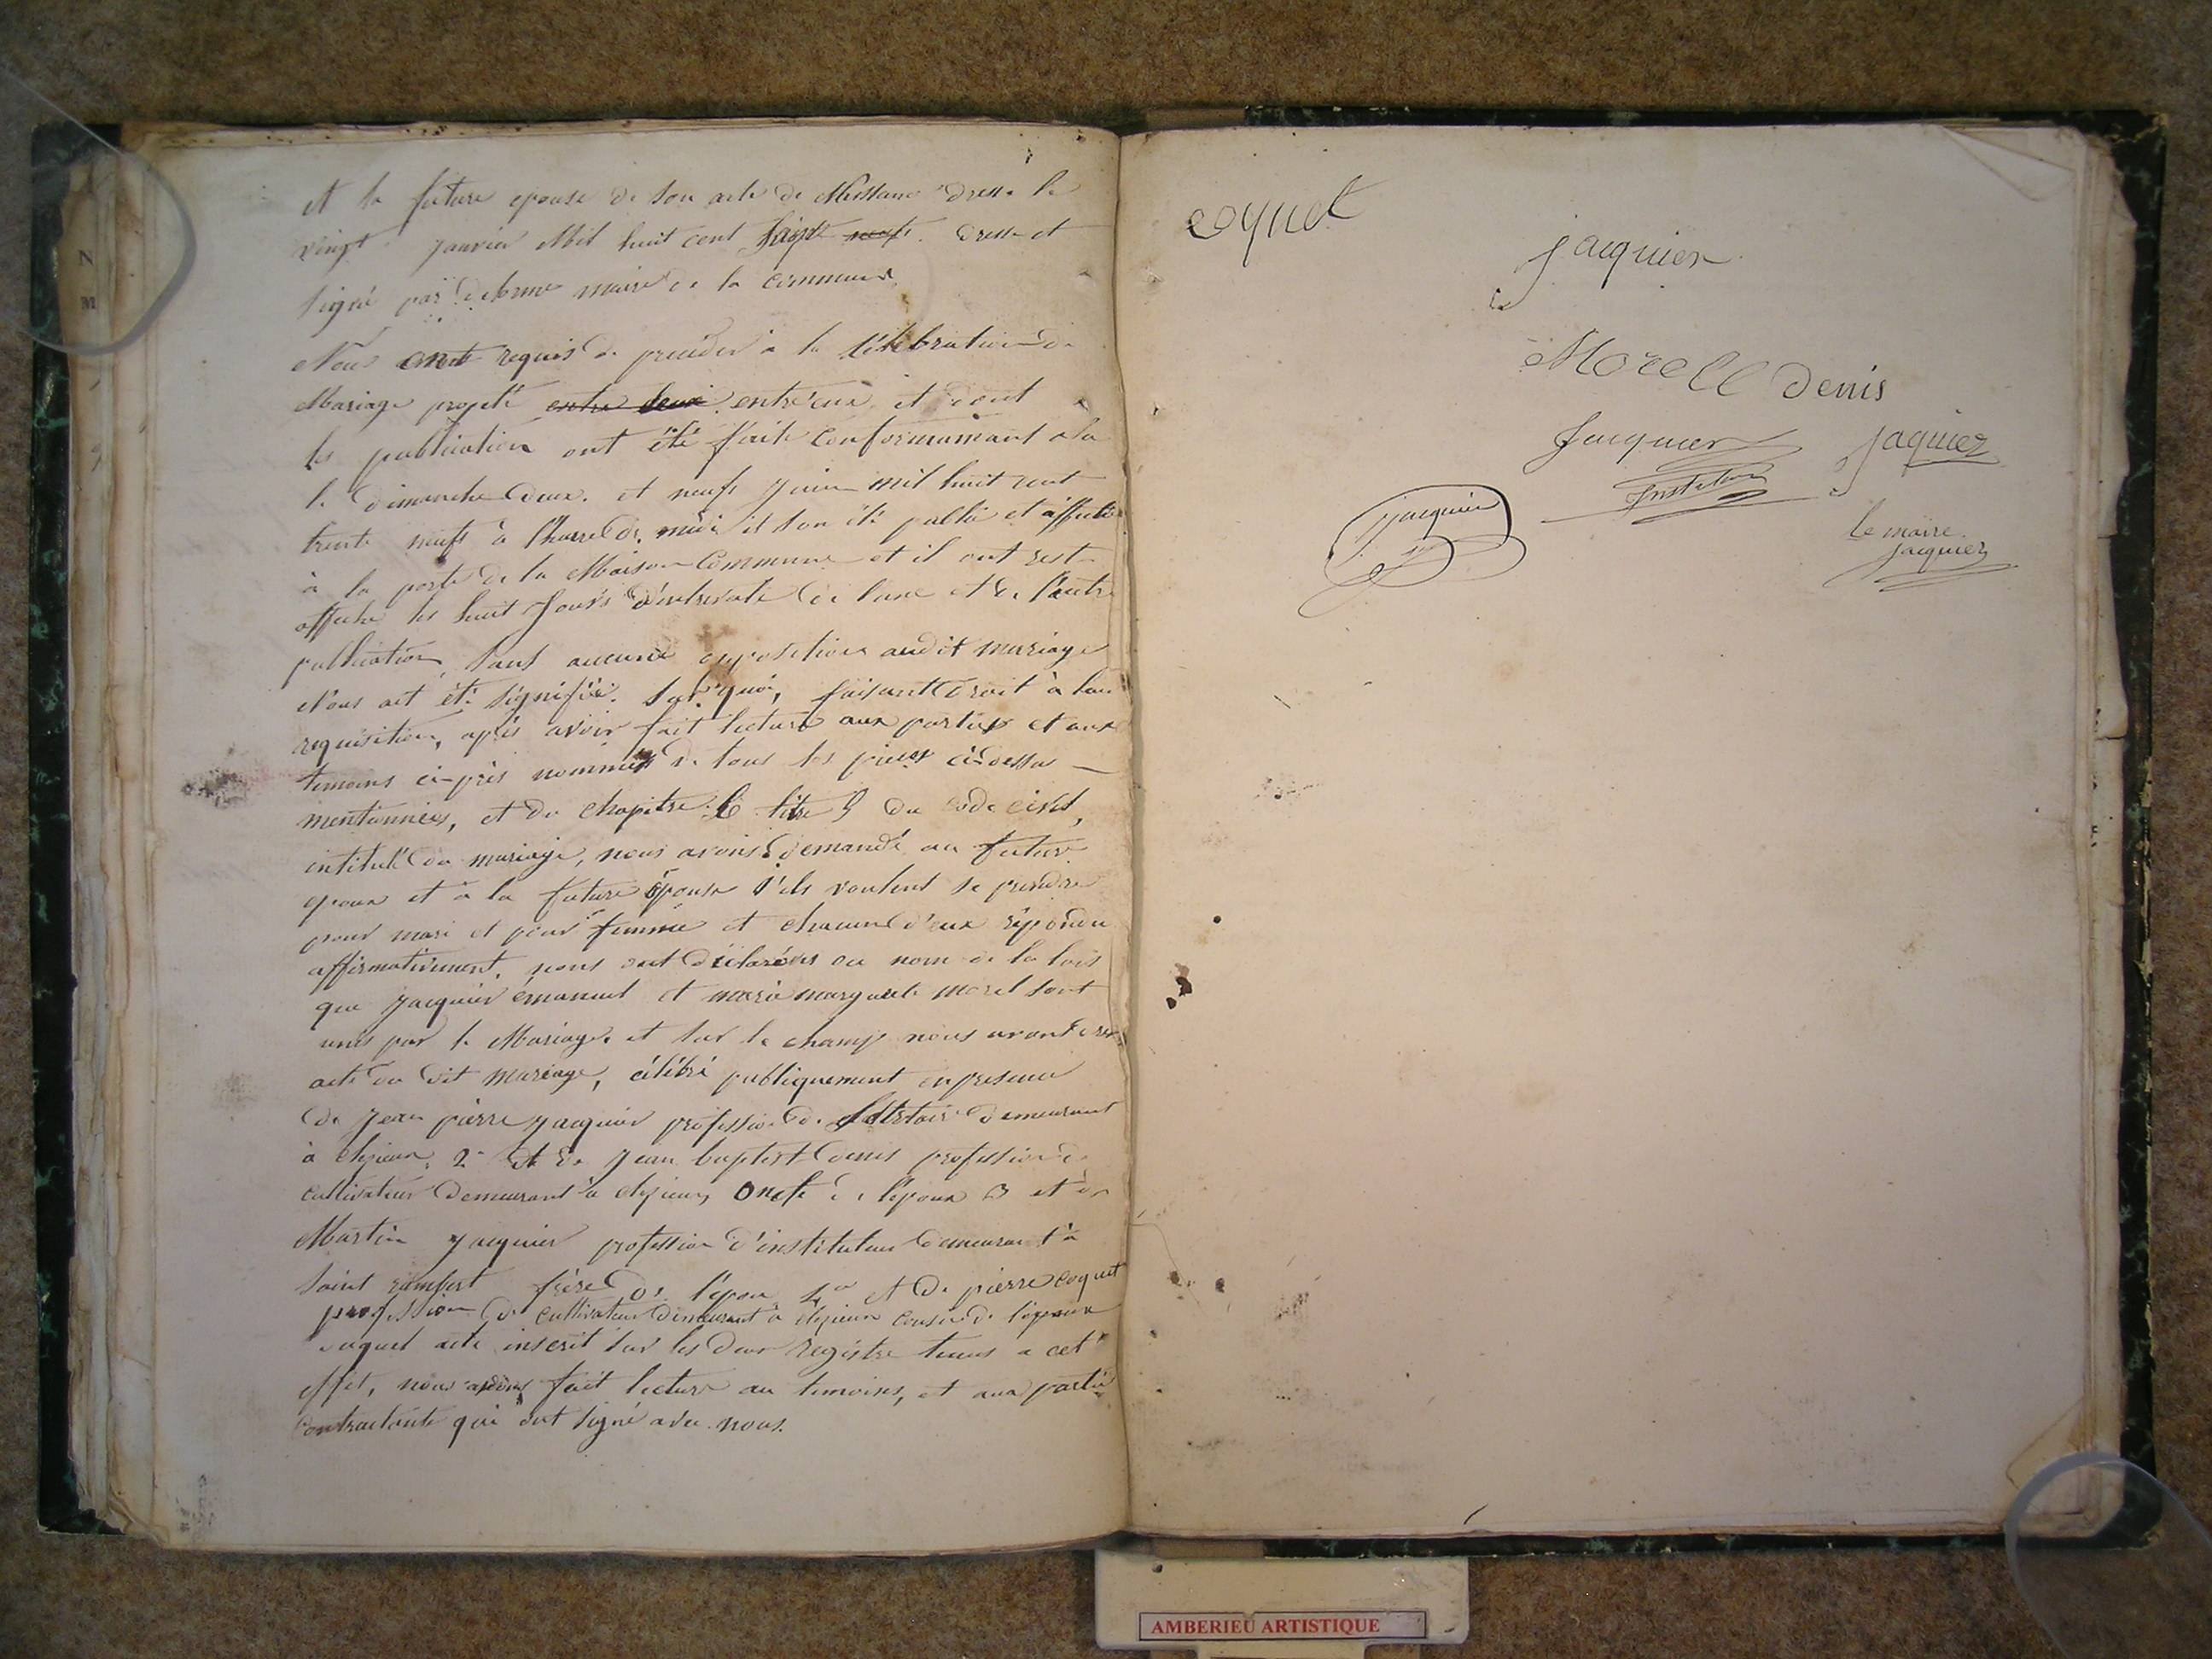 et la future epouse de son acte de Naissance dressé le
vingt janvier Mil huit cent dressé et
signé par delorme maire de la commune
Nous ont requis de proceder à la célébration du
Mariage projeté entre deux entr'eux et dont
les publication ont été fait conformamant a la
le dimanche deux. et neuf juin mil huit cent
trente neuf à l'heure de midi et son été publié et affiché
à la porte de la Maison Commune et il ont resté
affiché les huit Jours d'intervale de l'une et de l'autre
publication, sans aucune opposition audit mariage
Nous ait été signifiée. Sur quoi, faisant droit à leur
requisition, après avoir fait lecture aux parties et aux
temoins ci-près nommés de tous les pieces ci-dessu
mentionnées, et du chapitre 6 titre 5 du code civil,
intitulé du mariage, nous avons demandé au futur
epoux et à la future épouse s'ils veulent se prendre
pour mari et pour femme et chacun d'eux répondu
affirmativement, nous declarons au nom de la lois
que jacquier émanuel et marie marguerite morel sont
unis par le Mariage. et sur le champ nous avons
acte du dit mariage, célébré publiquement en presence
de jean pierre jacquier profession de demeurant
à 2° et de jean baptist denis profession de
cultivateur demeurant à oncle de l'époux 3 et de
Martin jacquier profession d'instituteur demeurant à
saint rambert frère de l'époux 4° et de pierre coquet
profession de cultivateur demeurant à cousin de l'epoux
duquel acte inscrit sur les deux registre tenus a cet
effet, nous avons fait lecture au temoins, et aux partie
contractante qui ont signé avec nous.
coquet
jacquier
Morell denis
Jacquier jaquier
Instituteur
jacquier
le maire
jacquier
N
M
AMBERIEU ARTISTIQUE